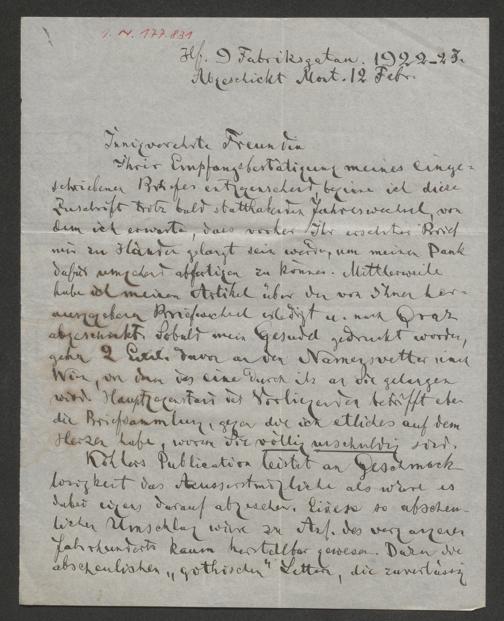 I. N. 177.831
Hf. 9 Fabriksgatan. 1922-23.
Abgeschickt Mont. 12 Febr.
Innigverehrte Freundin
Ihrer Empfangsbestätigung meines einge-
schriebenen Briefes entgegensehend, beginne ich diese
Zuschrift trotz bald statthabenden Jahreswechsel, von
dem ich erwarte, dass vorher Ihr ersehnter Brief
mir zu Händen gelangt sein werde, um meinen Dank
dafür umgehend abfertigen zu können. Mittlerweile
habe ich meinen Artikel über den von Ihnen her-
ausgegebenen Briefwechsel erledigt u. nach Graz
abgeschickt. Sobald mein Gesudel gedruckt worden,
gehen 2 Exx. davon an den Namensvetter nach
Wien, von denen das eine durch ihn an Sie gelangen
wird. Hauptgegenstand des Vorliegenden betrifft eben
die Briefsammlung, gegen die ich etliches auf dem
Herzen habe, woran Sie völlig unschuldig sind.
Köhlers Publication leistet an Geschmack-
losigkeit das Äusserstmögliche als wäre es
dabei eigens darauf abgesehen. Ein so abscheu-
licher Umschlag wäre zu Anf. des vergangenen
Jahrhunderts kaum herstellbar gewesen. Dazu die
abscheulichen "gothischen" Lettern, die zuverlässig